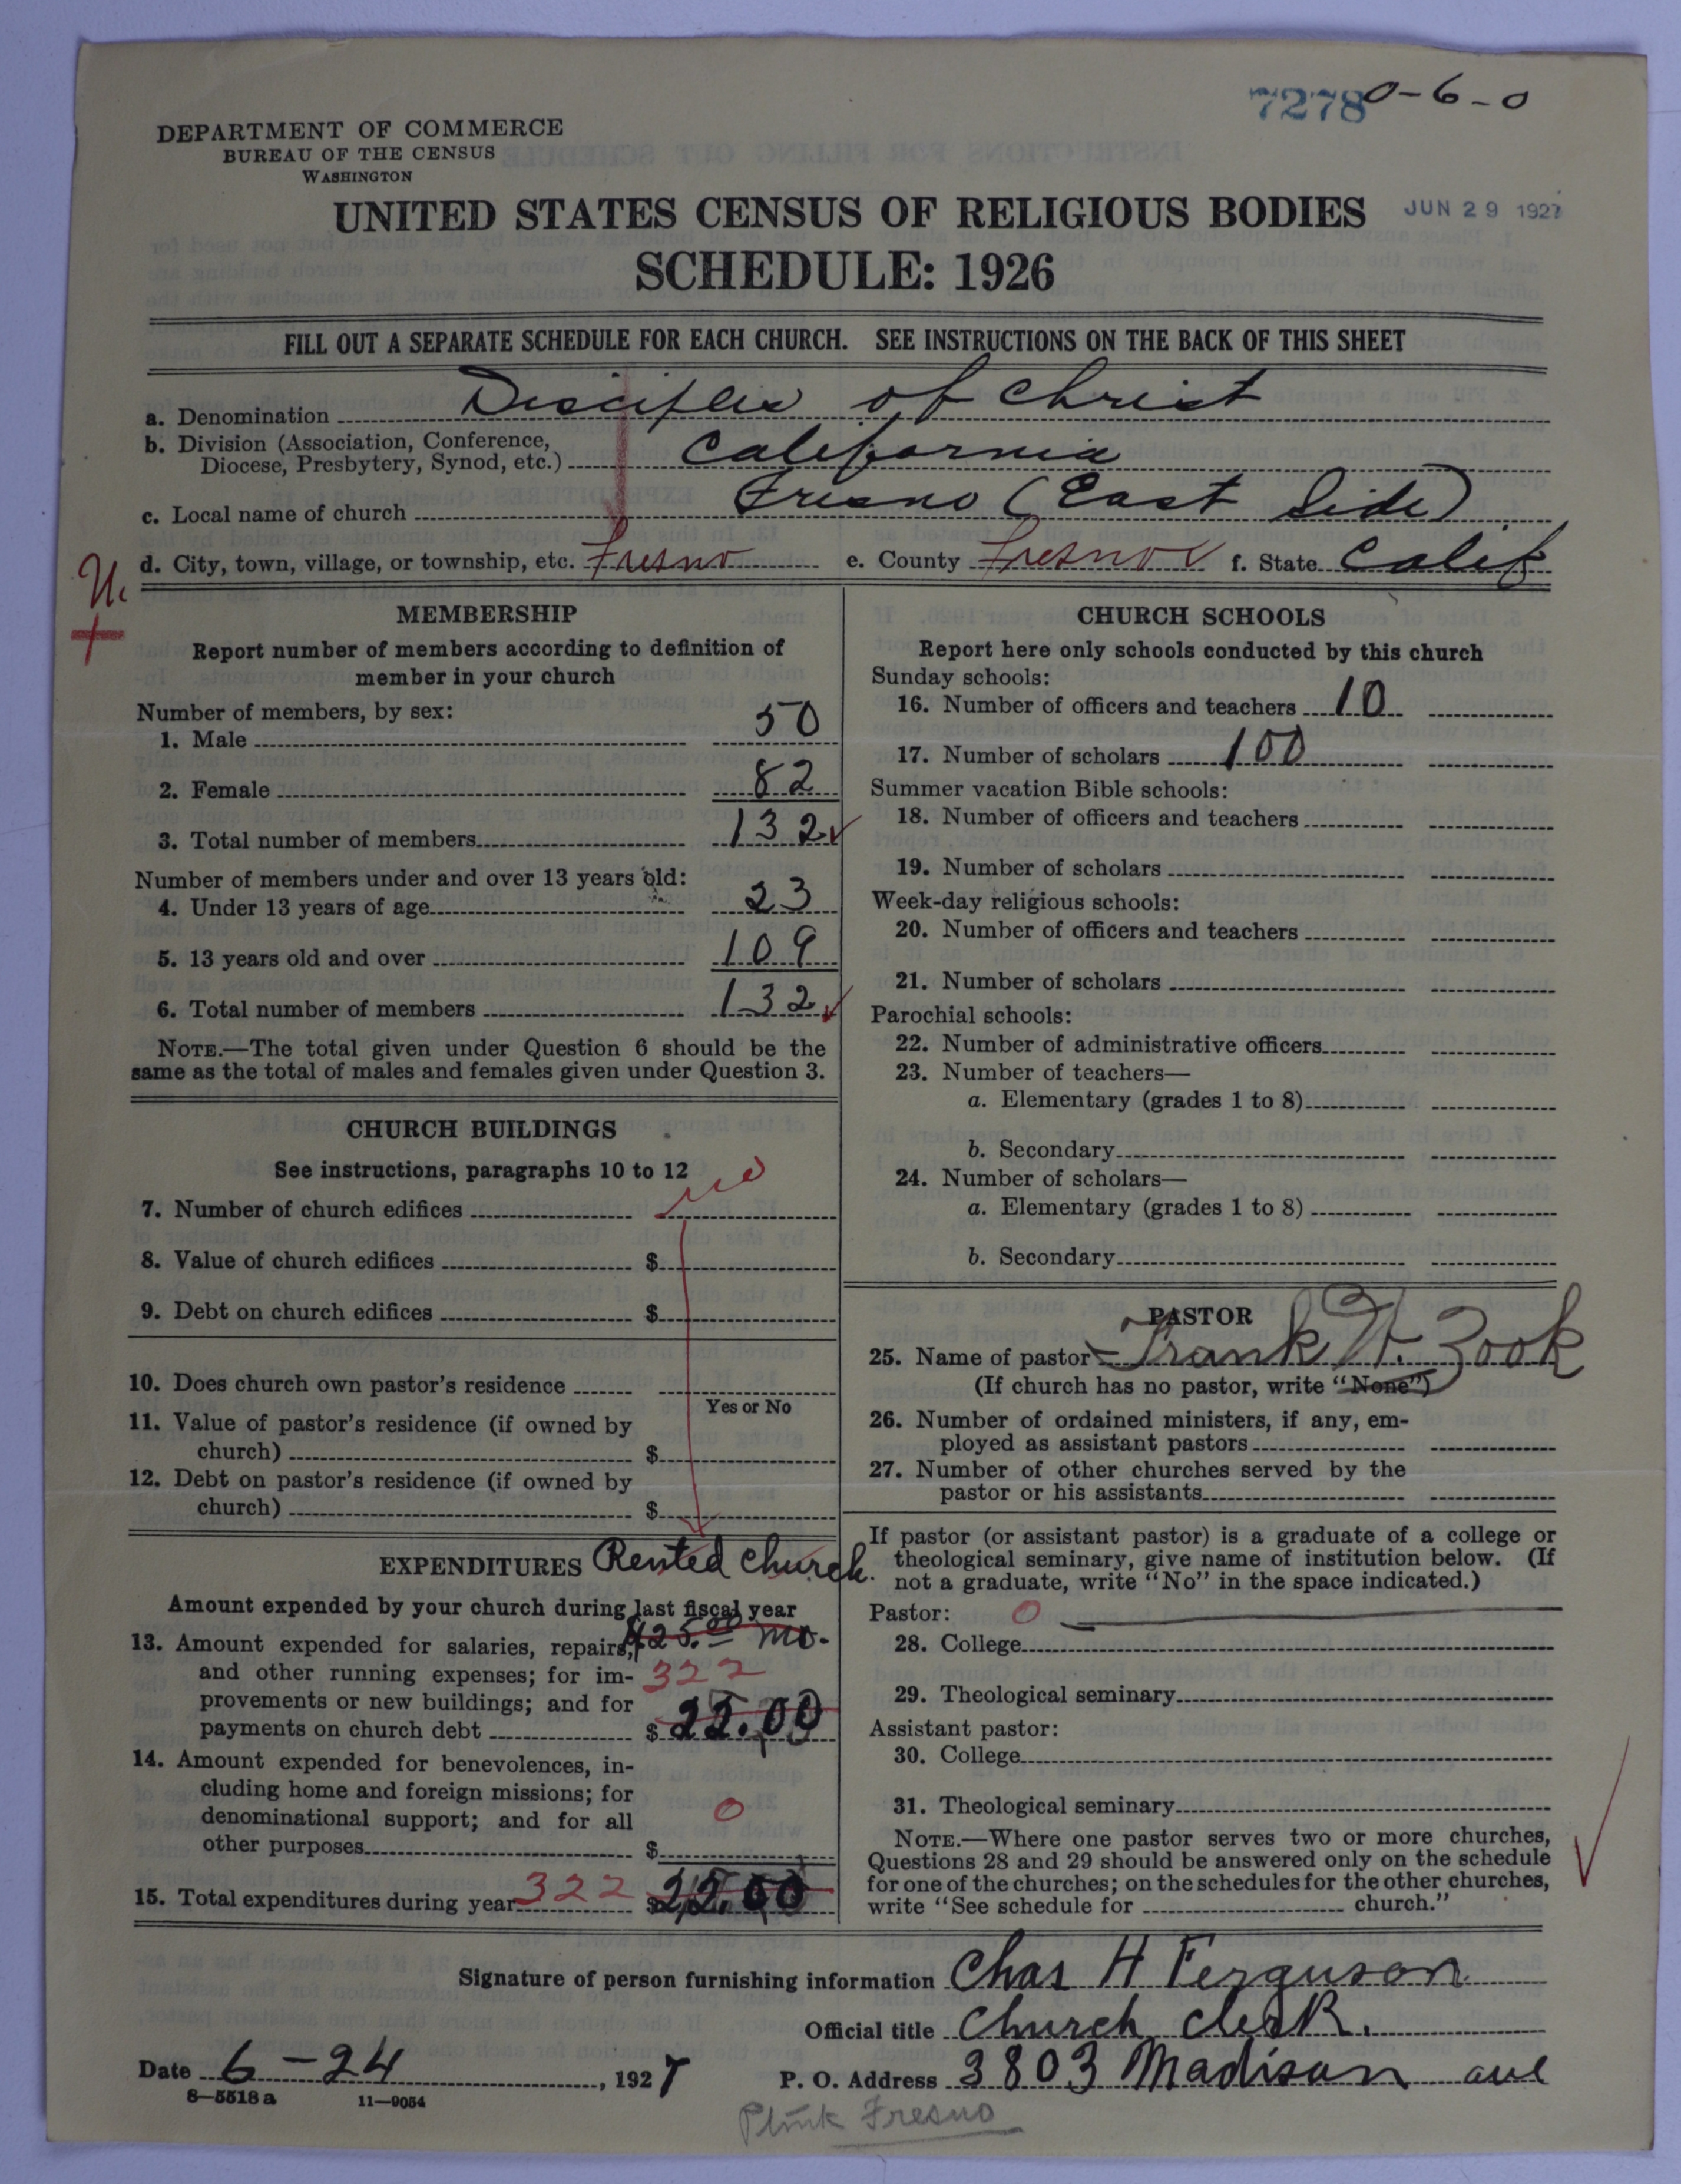 7278 0-6-0
DEPARTMENT OF COMMERCE
BUREAU OF THE CENSUS
WASHINGTON
UNITED STATES CENSUS OF RELIGIOUS BODIES
JUN 29 1927
SCHEDULE: 1926
FILL OUT A SEPARATE SCHEDULE FOR EACH CHURCH. SEE INSTRUCTIONS ON THE BACK OF THIS SHEET
a. Denomination Disciples of Christ
b. Division (Association, Conference,
Diocese, Presbytery, Synod, etc.) California
c. Local name of church Fresno (East Side)
d. City, town, village, or township, etc. Fresno e. County Fresno f. State Calif
MEMBERSHIP
Report number of members according to definition of
member in your church
Number of members, by sex:
1. Male 50
2. Female 82
3. Total number of members 132
Number of members under and over 13 years old:
4. Under 13 years of age 23
5. 13 years old and over 109
6. Total number of members 132
NOTE.—The total given under Question 6 should be the
same as the total of males and females given under Question 3.
CHURCH BUILDINGS
See instructions, paragraphs 10 to 12
7. Number of church edifices no
8. Value of church edifices $
9. Debt on church edifices $
10. Does church own pastor's residence
Yes or No
11. Value of pastor's residence (if owned by
church) $
12. Debt on pastor's residence (if owned by
church) $
EXPENDITURES Rented Church.
Amount expended by your church during last fiscal year
13. Amount expended for salaries, repairs, $25.00 mo.
and other running expenses; for im- 322
provements or new buildings; and for
payments on church debt $ 22.00
14. Amount expended for benevolences, in-
cluding home and foreign missions; for
denominational support; and for all 0
other purposes $
15. Total expenditures during year 322 $ 22.00
CHURCH SCHOOLS
Report here only schools conducted by this church
Sunday schools:
16. Number of officers and teachers 10
17. Number of scholars 100
Summer vacation Bible schools:
18. Number of officers and teachers
19. Number of scholars
Week-day religious schools:
20. Number of officers and teachers
21. Number of scholars
Parochial schools:
22. Number of administrative officers
23. Number of teachers—
a. Elementary (grades 1 to 8)
b. Secondary
24. Number of scholars—
a. Elementary (grades 1 to 8)
b. Secondary
PASTOR
25. Name of pastor Frank W. Zook
(If church has no pastor, write "None")
26. Number of ordained ministers, if any, em-
ployed as assistant pastors
27. Number of other churches served by the
pastor or his assistants
If pastor (or assistant pastor) is a graduate of a college or
theological seminary, give name of institution below. (If
not a graduate, write "No" in the space indicated.)
Pastor: 0
28. College
29. Theological seminary
Assistant pastor:
30. College
31. Theological seminary
NOTE.—Where one pastor serves two or more churches,
Questions 28 and 29 should be answered only on the schedule
for one of the churches; on the schedules for the other churches,
write "See schedule for church."
Signature of person furnishing information Chas H Ferguson
Official title Church clerk.
Date 6-24, 1927 P. O. Address 3803 Madison ave
8—5518a 11—9054
Fresno